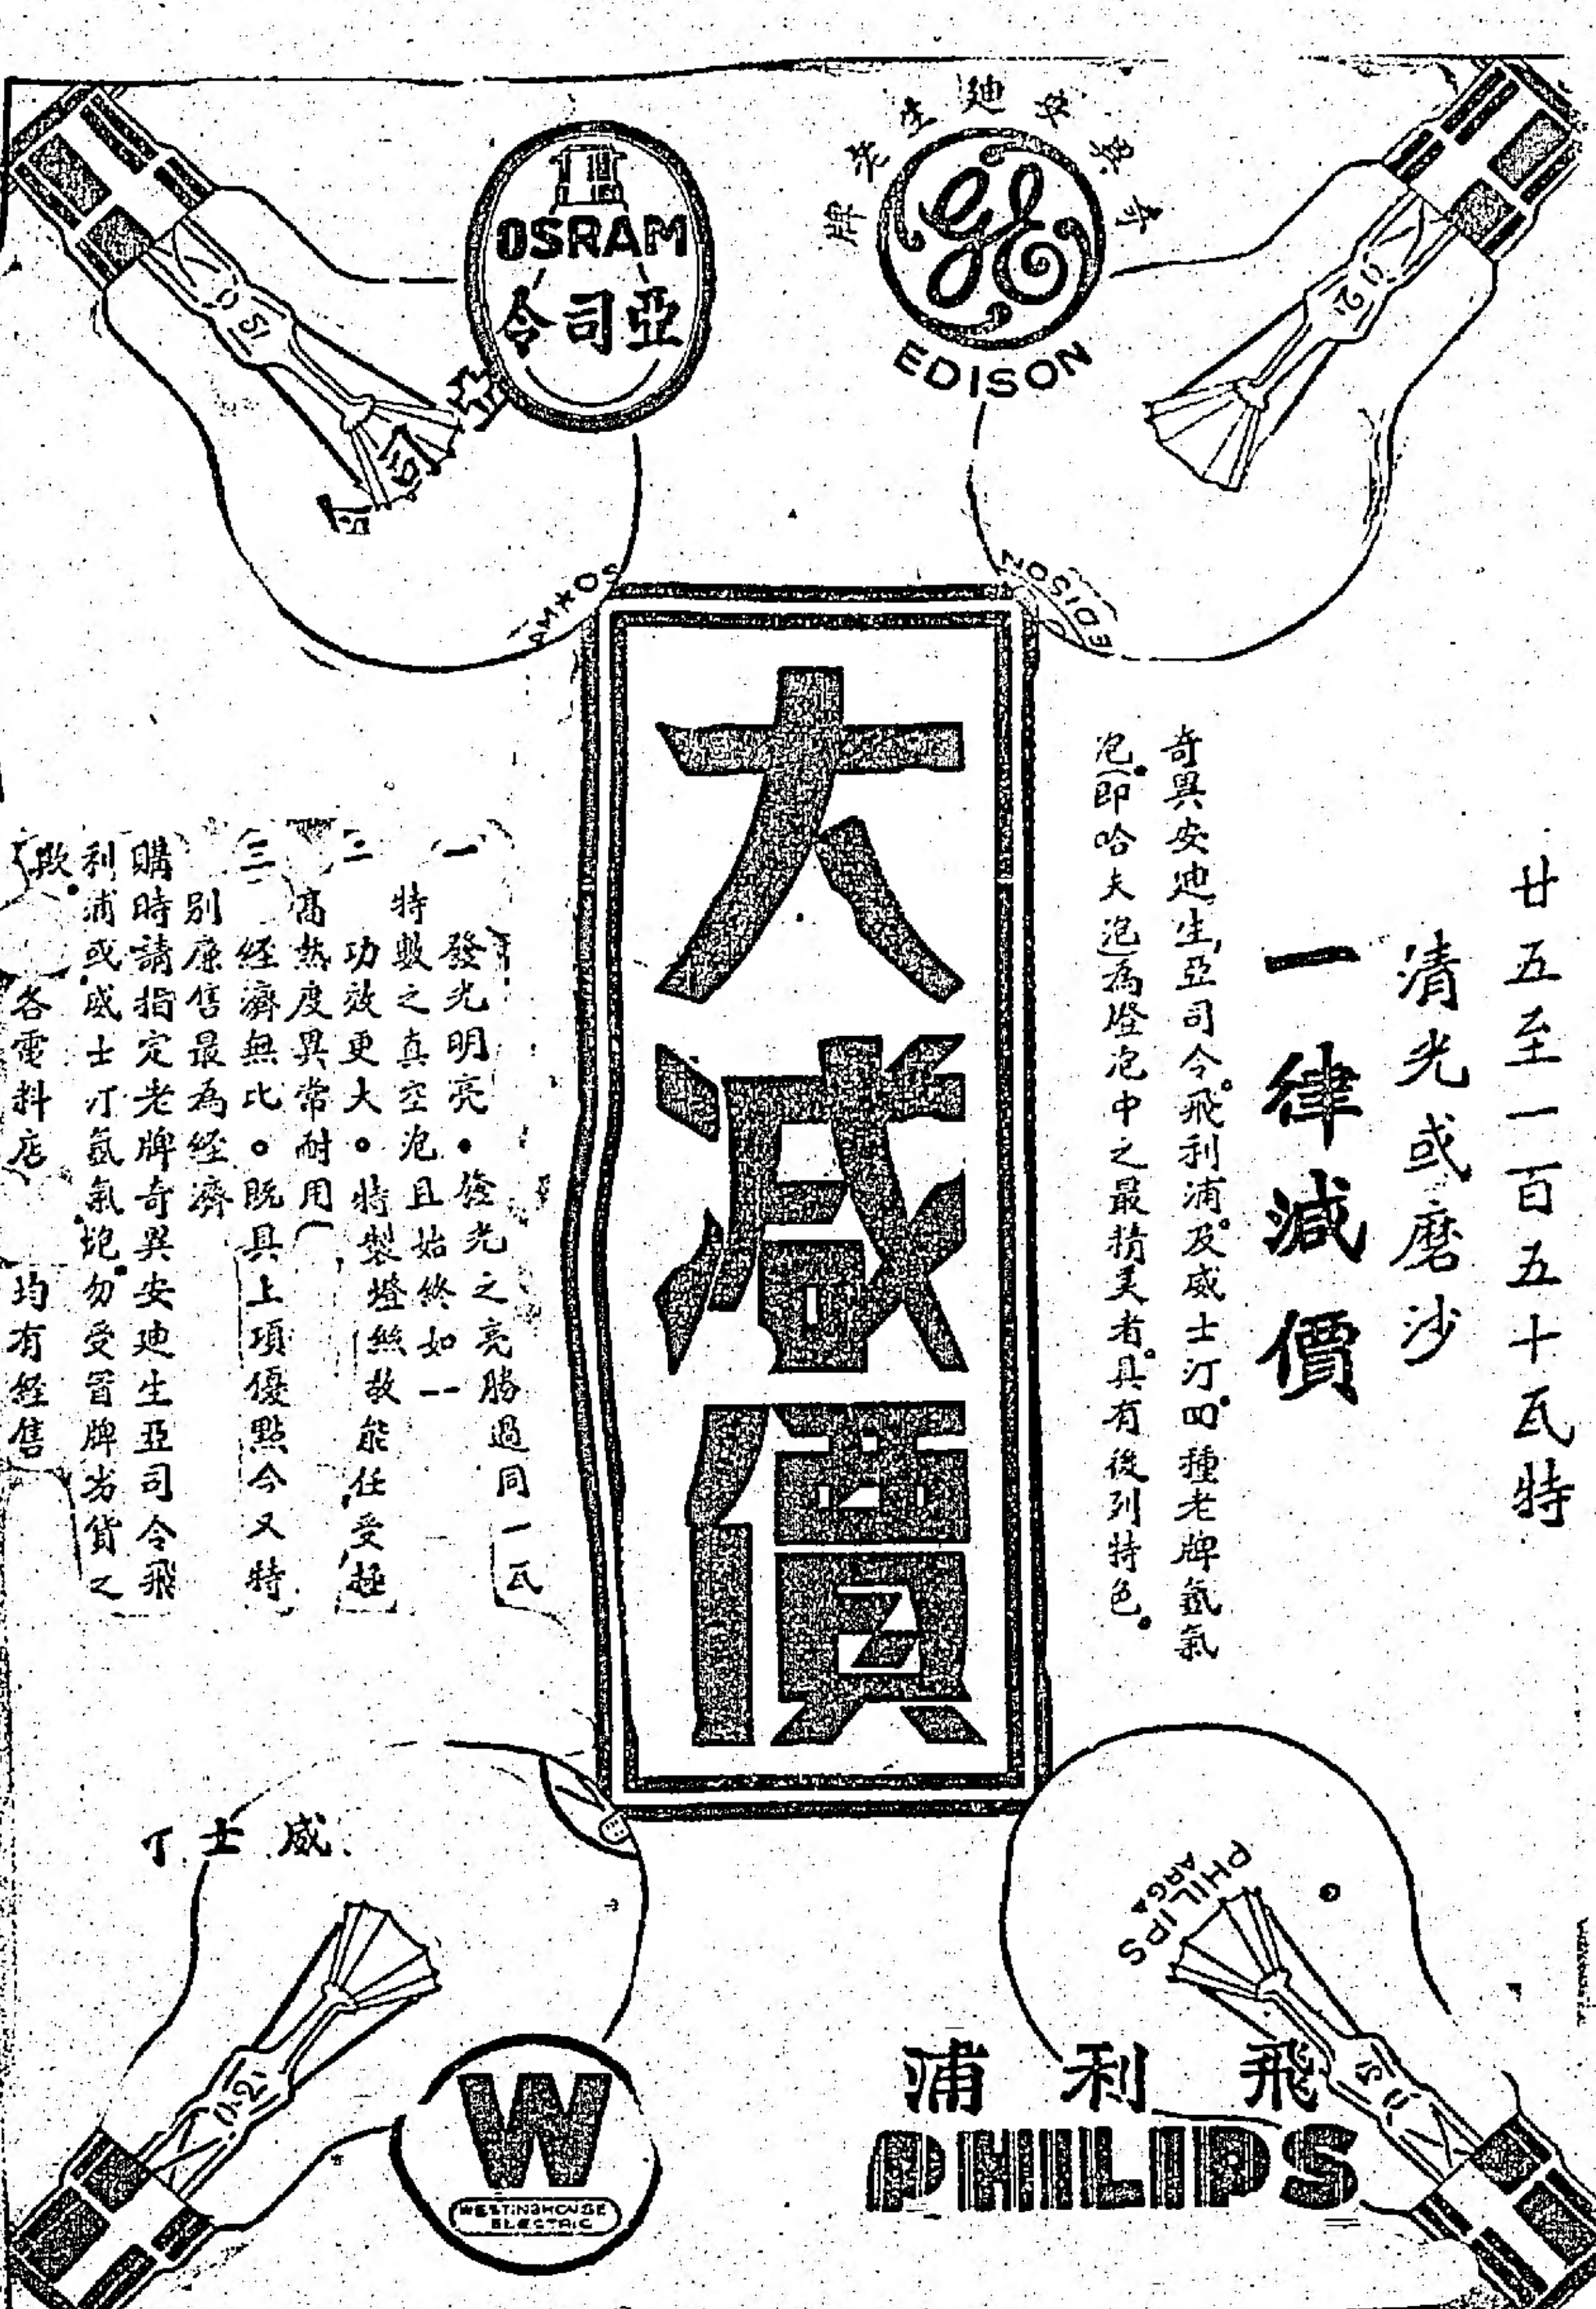 牌老生迪安異奇
EDISON
OSRAM
亞司令
亞司令
EDISON
廿五至一百五十瓦特
清光或磨沙
一律減價
奇異安迪生,亞司令。飛利浦。及威士汀。四種老牌氬氣
泡。(即哈夫泡為燈泡中之最精美者。具有後列特色。
大減價
一 發光明亮。發光之亮勝過同一瓦
特數之真空泡且始終如一
二 功效更大。特製燈絲故能任受極
高熱度異常耐用
三 經濟無比。既具上項優點今又特
別廉售最為經濟
購時請指定老牌奇異安迪生亞司令飛
利浦或威士汀氬氣炮。勿受冒牌劣貨之
欺。
各電料店 均有經售
威士丁
W
WESTINGHOUSE
ELECTRIC
PHILIPS
ARGA
飛利浦
PHILIPS